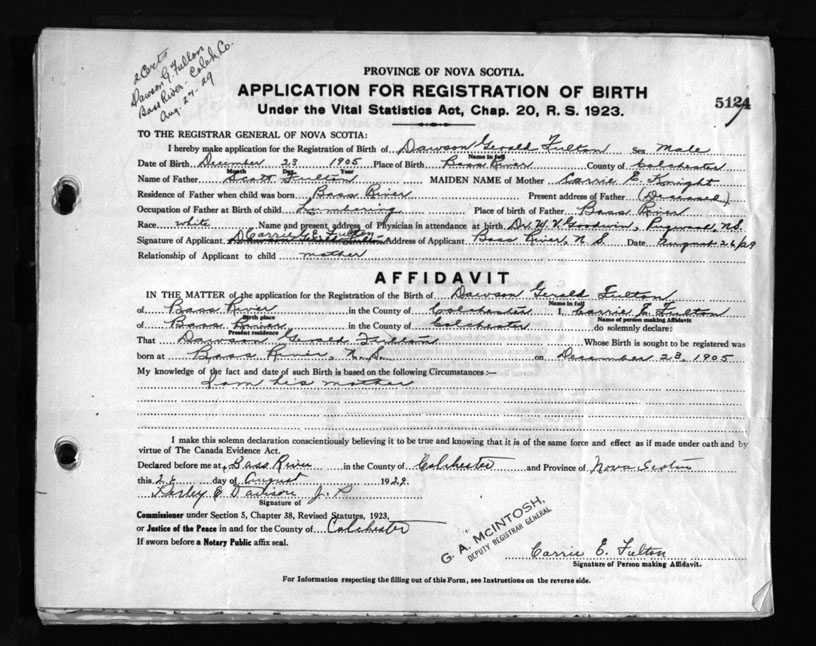 2 Certs
Dawson G. Fulton
Bass River - Colch. Co.
Aug - 27 - 29
PROVINCE OF NOVA SCOTIA.
APPLICATION FOR REGISTRATION OF BIRTH
5124
Under the Vital Statistics Act, Chap. 20, R. S. 1923.
TO THE REGISTRAR GENERAL OF NOVA SCOTIA:
I hereby make application for the Registration of Birth of Dawson Gerald Fulton Sex Male
Name in full
Date of Birth December 23 1905 Place of Birth Bass River County of Colchester
Month Day Year
Name of Father Scott Fulton MAIDEN NAME of Mother Carrie E. Knight
Residence of Father when child was born Bass River Present address of Father (Deceased)
Occupation of Father at Birth of child Lumbering Place of birth of Father Bass River
Race white Name and present address of Physician in attendance at birth Dr. Goodwin, Pugwash, N.S.
Signature of Applicant Carrie E. Fulton Address of Applicant Bass River, N.S. Date August 26/29
Relationship of Applicant to child mother
AFFIDAVIT
IN THE MATTER of the application for the Registration of the Birth of Dawson Gerald Fulton
Name in full
of Bass River in the County of Colchester I, Carrie E. Fulton
Birth place Name of person making Affidavit
of Bass River in the County of Colchester do solemnly declare:
Present residence
That Dawson Gerald Fulton Whose Birth is sought to be registered was
born at Bass River, N.S. on December 23, 1905
My knowledge of the fact and date of such Birth is based on the following Circumstances :—
I am his mother
I make this solemn declaration conscientiously believing it to be true and knowing that it is of the same force and effect as if made under oath and by
virtue of The Canada Evidence Act.
Declared before me at Bass River in the County of Colchester and Province of Nova Scotia
this 26 day of August 1929
Davison J. P.
Signature of
Commissioner under Section 5, Chapter 38, Revised Statutes, 1923,
or Justice of the Peace in and for the County of Colchester
If sworn before a Notary Public affix seal.
G. A. MCINTOSH,
DEPUTY REGISTRAR GENERAL
Carrie E. Fulton
Signature of Person making Affidavit.
For Information respecting the filling out of this Form, see Instructions on the reverse side.